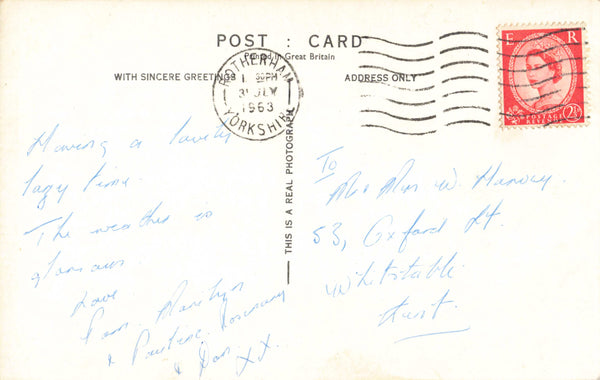 POST : CARD
Printed in Great Britain
WITH SINCERE GREETINGS
ADDRESS ONLY
ROTHERHAM
1 30PM
31 JLY
1963
YORKSHIRE
E R
POSTAGE
REVENUE
2½D
THIS IS A REAL PHOTOGRAPH
Having a lovely
lazy time.
The weather is
glorious
Love
Pam, Marilyn
& Pauline, Rosemary
& Don. XX.
To
Mr Mrs W. Harvey.
53, Oxford St.
Whitstable
Kent.